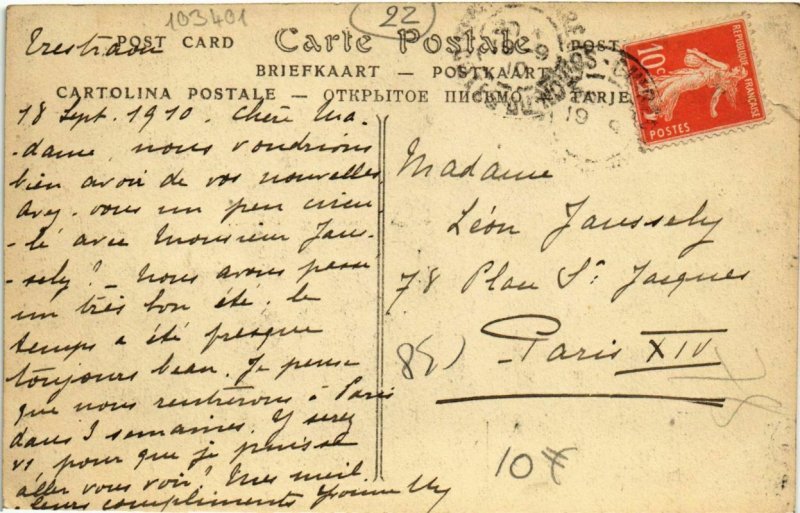 103401
22
Trestraou
POST CARD Carte Postale POST
BRIEFKAART — POSTKAART
CARTOLINA POSTALE — ОТКРЫТОЕ ПИСЬМО TARJE
18 Sept. 1910. Chère Ma-
-dame, nous voudrions
bien avoir de vos nouvelles
avez-vous un peu circu-
-lé avec Monsieur Jaus-
-sely? - Nous avons passé
un très bon été. le
temps a été presque
toujours beau. Je pense
que nous rentrerons à Paris
dans 3 semaines. Y serez
vs pour que je puisse
aller vous voir? Mes meil-
-leurs compliments Yvonne
REPUBLIQUE FRANÇAISE
10c
POSTES
Madame
Léon Jaussely
78 Place St. Jacques
Paris XIV
10€